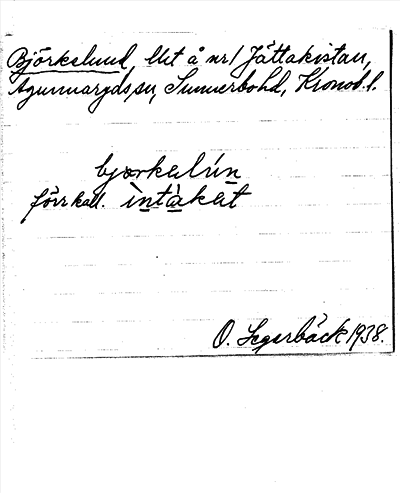 Björkelund, lht å nr 1 Jättakistan,
Agunnaryds sn, Sunnerbo hd, Kronob. l.
bjœrkəlún
förr kall. ìntàkət
O. Segerbäck 1938.